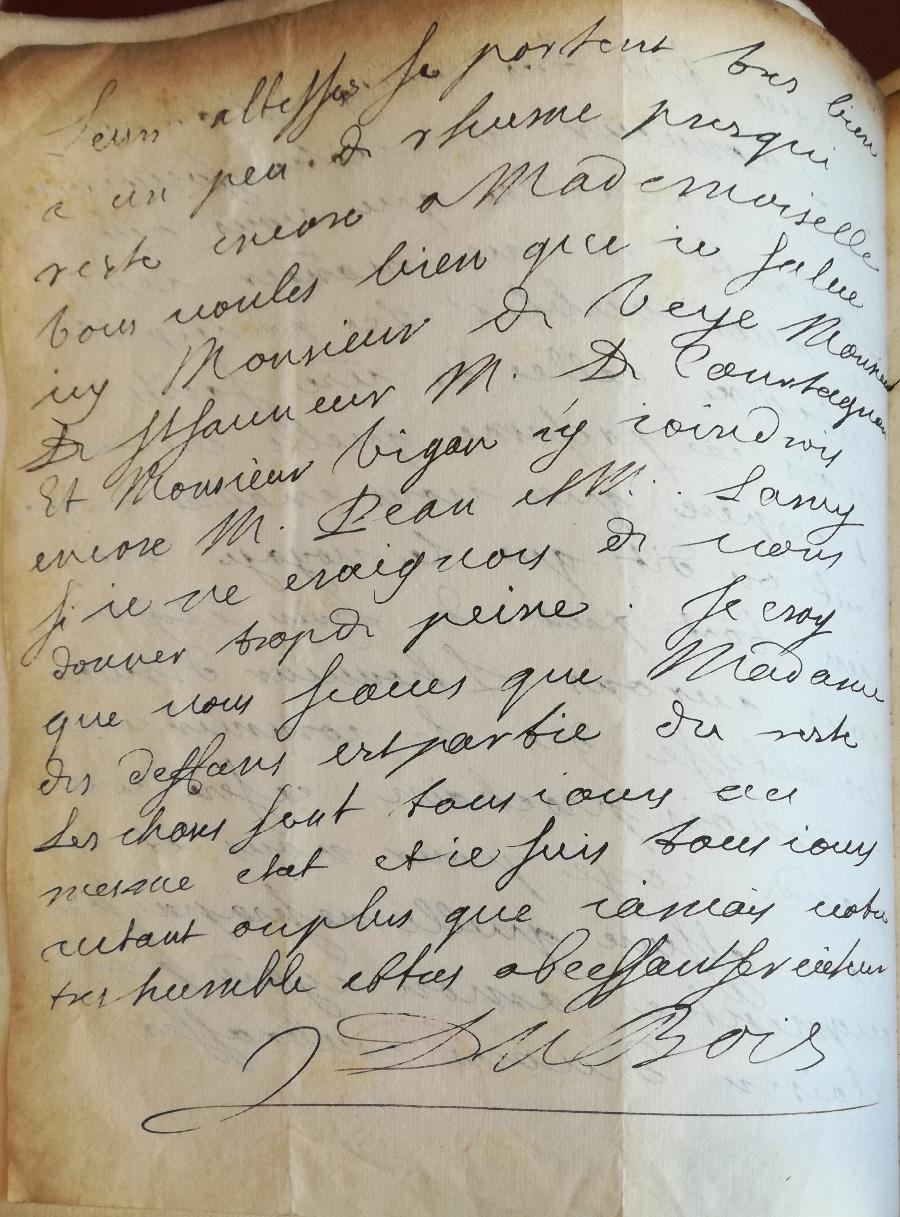 Leurs altesses se portent tres bien
a un peu de rhume presqui
reste encore a Mademoiselle
Vous voules bien que ie salue
icy Monsieur de Veye Monsieur
De St sauueur M. De Courtagnon
Et Monsieur Vigan i'y ioindrois
encore M. Peau et M. Lamy
si ie ne craignois de vous
donner trop de peine. Je croy
que vous scaues que Madame
des deffans est partie du reste
Les choses sont tousiours au
mesme etat et ie suis tousiours
autant ou plus que iamais votre
tres humble et tres obeessant serviteur
Du Bois